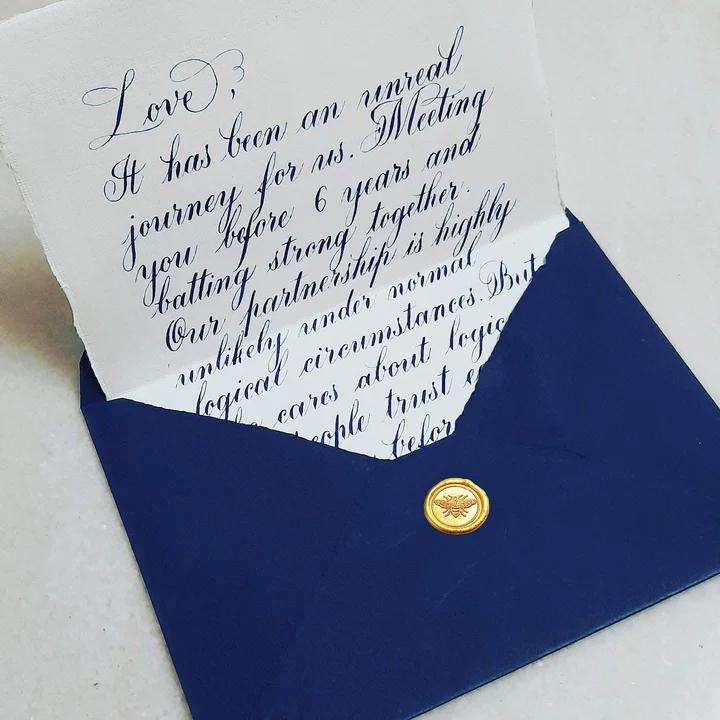 Love,
It has been an unreal
journey for us. Meeting
you before 6 years and
batting strong together.
Our partnership is highly
unlikely under normal
logical circumstances. But
cares about logic
people trust
before